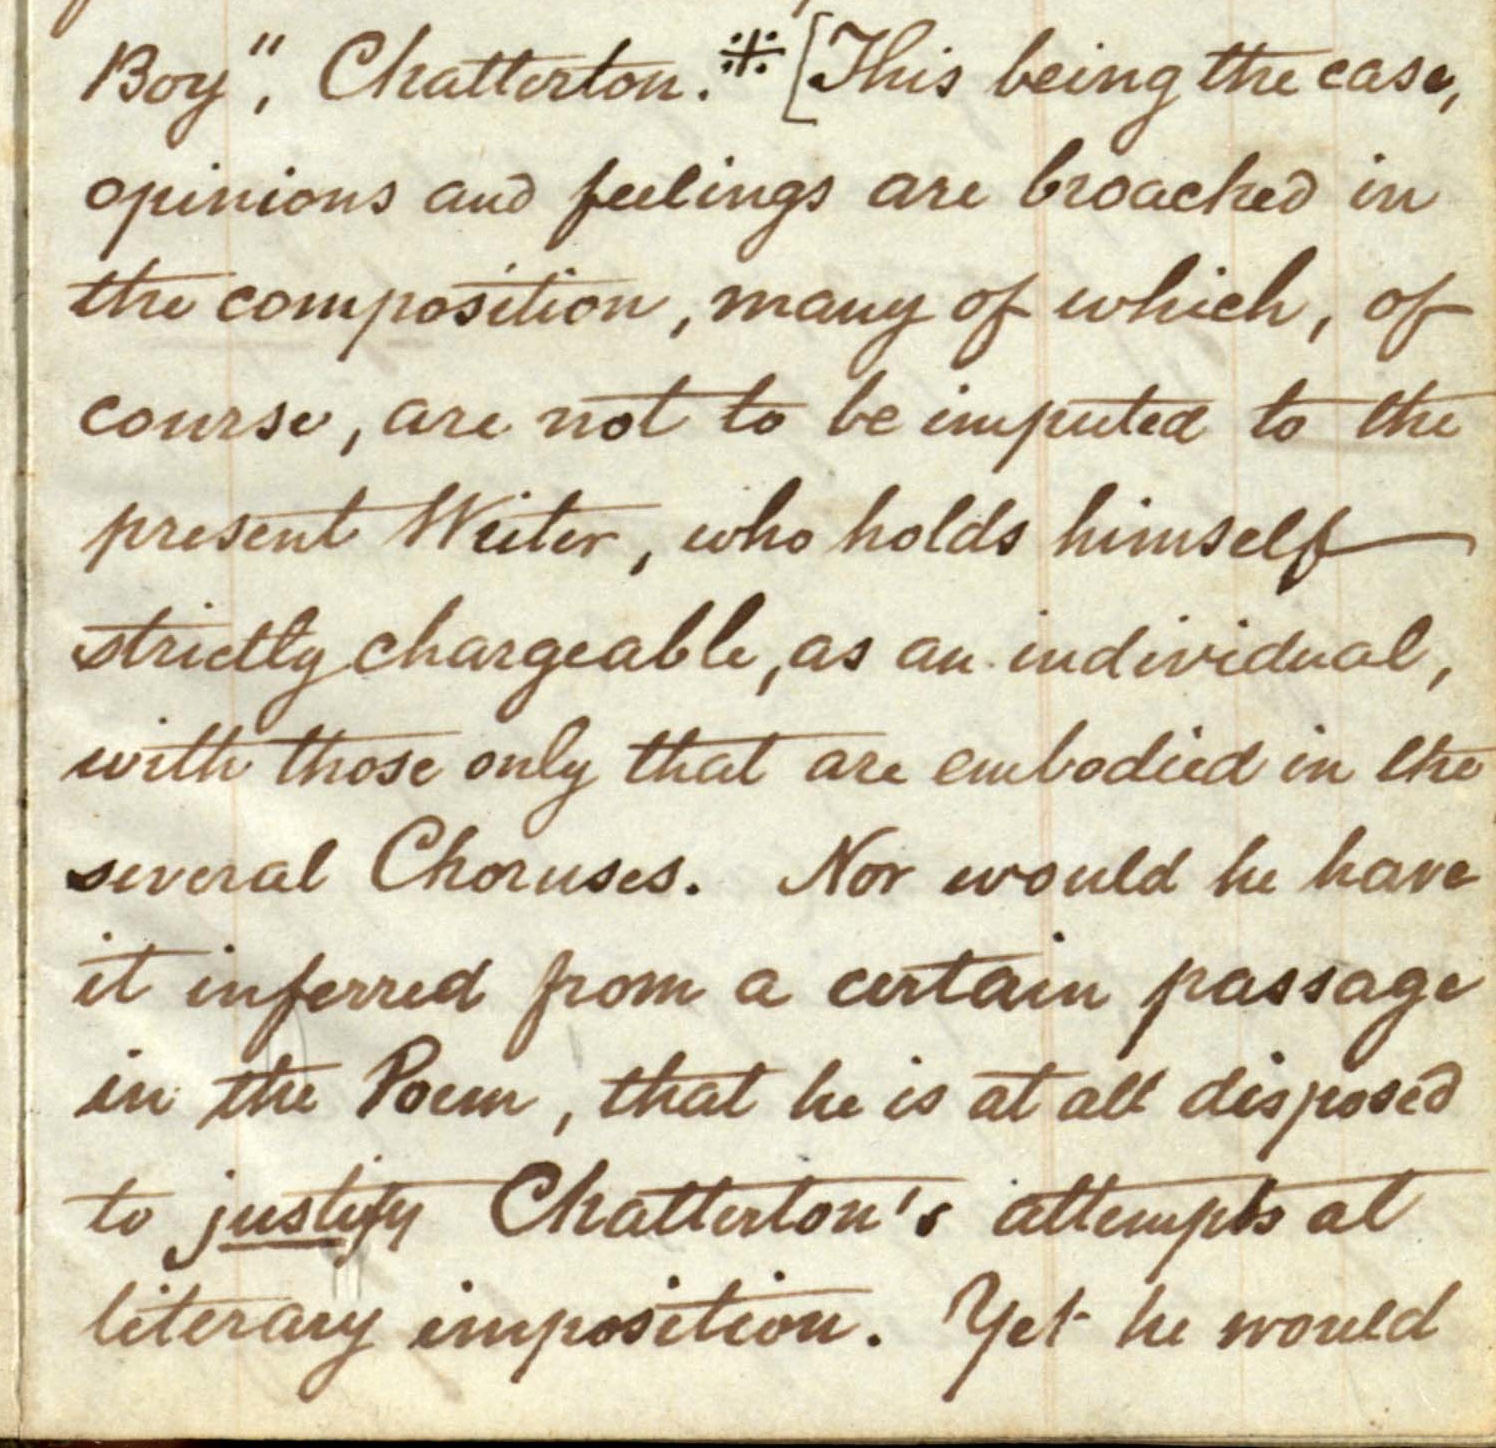 Boy", Chatterton.※ [This being the case,
opinions and feelings are broached in
the composition, many of which, of
course, are not to be imputed to the
present Writer, who holds himself
strictly chargeable, as an individual,
with those only that are embodied in the
several Choruses. Nor would he have
it inferred from a certain passage
in the Poem, that he is at all disposed
to justify Chatterton's attempts at
literary imposition. Yet he would